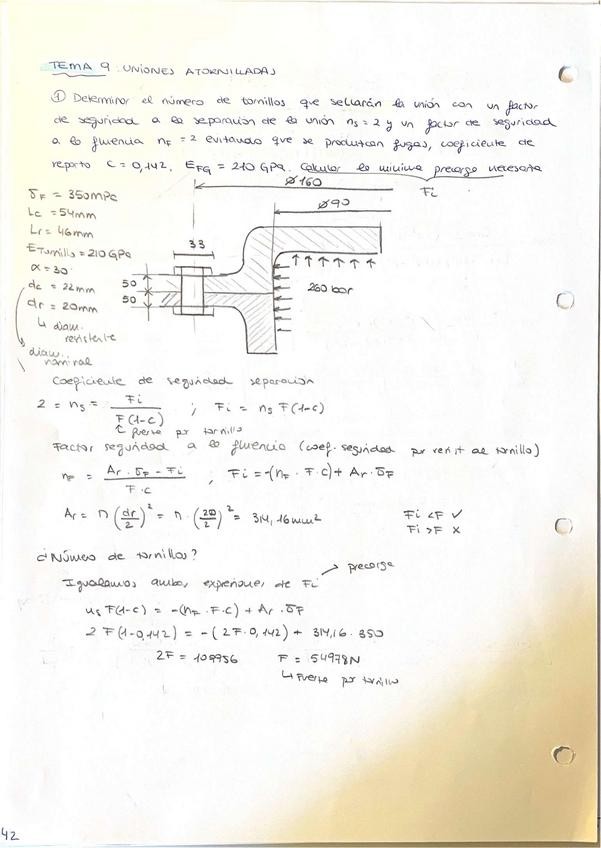 TEMA 9. UNIONES ATORNILLADAS
① Determinar el número de tornillos que sellarán la unión con un factor
de seguridad a la separación de la unión ns = 2 y un factor de seguridad
a la fluencia nF = 2 evitando que se produzcan fugas, coeficiente de
reparto C = 0,142, EFG = 210 GPa. Calcular la mínima precarga necesaria
Fi
σF = 350 MPa
Lc = 54mm
Lr = 46mm
ETornillo = 210 GPa
α = 30°
dc = 22mm
dr = 20mm
↳ diam. resistente
diam. nominal
Ø160
Ø90
33
50
50
260 bar
Coeficiente de seguridad separación
2 = ns = Fi / F(1-C) ; Fi = ns F(1-C)
↑ fuerza por tornillo
Factor seguridad a la fluencia (coef. seguridad por resist al tornillo)
nF = Ar · σF - Fi / F·C ; Fi = -(nF · F·C) + Ar · σF
Ar = π (dr/2)² = π · (20/2)² = 314,16mm²
Fi < F ✓
Fi > F ✗
¿Número de tornillos?
Igualamos ambas expresiones de Fi → precarga
ns F(1-C) = -(nF · F·C) + Ar · σF
2 F(1-0,142) = -(2F·0,142) + 314,16 · 350
2F = 109956 F = 54978N
↳ Fuerza por tornillo
42